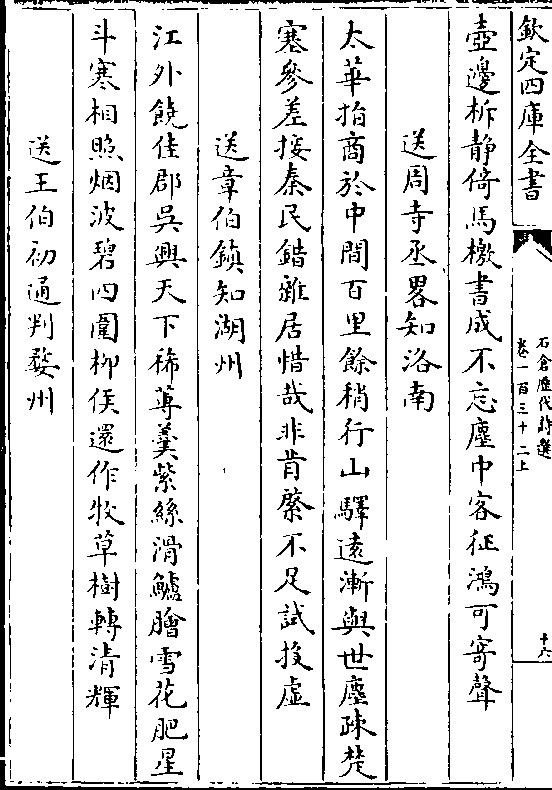 欽定四庫全書
石倉歷代詩選
卷一百三十二上
十六
壺邊柝靜倚馬檄書成不忘塵中客征鴻可寄聲
送周寺丞畧知洛南
太華指商於中間百里餘稍行山驛遠漸與世塵疎楚
塞參差接秦民錯雜居惜哉非肯綮不足試投虛
送章伯鎮知湖州
江外饒佳郡吳興天下稀蓴羹紫絲滑鱸膾雪花肥星
斗寒相照烟波碧四圍柳侯還作牧草樹轉清輝
送王伯初通判婺州